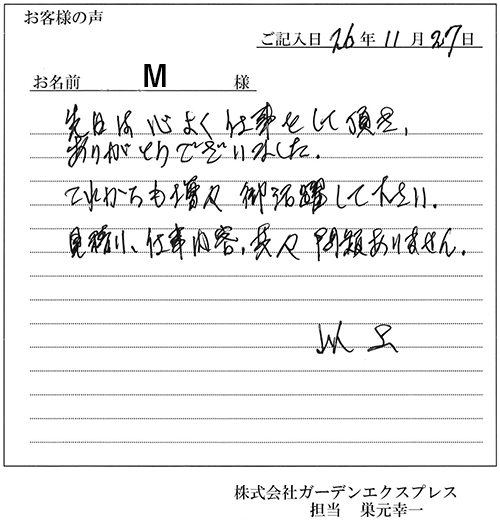 お客様の声
ご記入日 26年 11月 27日
お名前 M 様
先日は心よく仕事をして頂き、
ありがとうございました。
これからも増々御活躍して下さい。
見積り、仕事内容、共々問題ありません。
以上
株式会社ガーデンエクスプレス
担当 巣元幸一